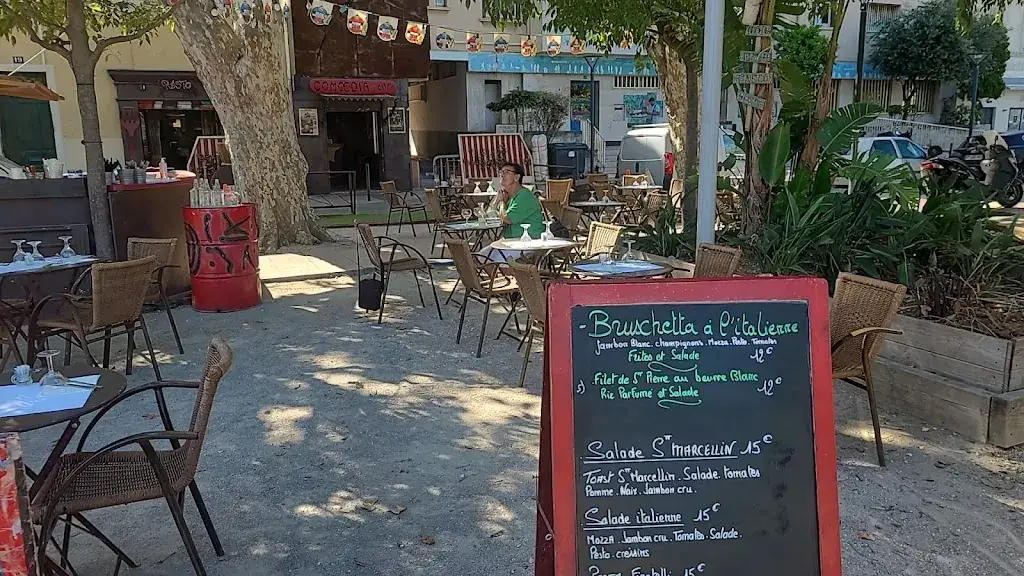 RESTO
COMOEDIA
- Bruschetta à l'italienne
Jambon Blanc. champignons. Mozza. Pesto. Tomates
Frites et Salade 12€
Filet de St Pierre au beurre Blanc
Riz Parfumé et Salade 12€
Salade St MARCELLIN 15€
Toast St Marcellin. Salade. Tomates
Pomme. Noix. Jambon cru.
Salade italienne 15€
Mozza. Jambon cru. Tomates. Salade.
Pesto. cressins
15€